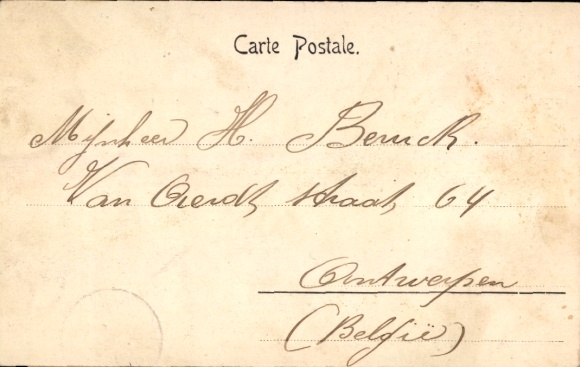 Carte Postale.
Mijnheer H. Beruck.
Van Aerdt straat 64
Antwerpen
(België)